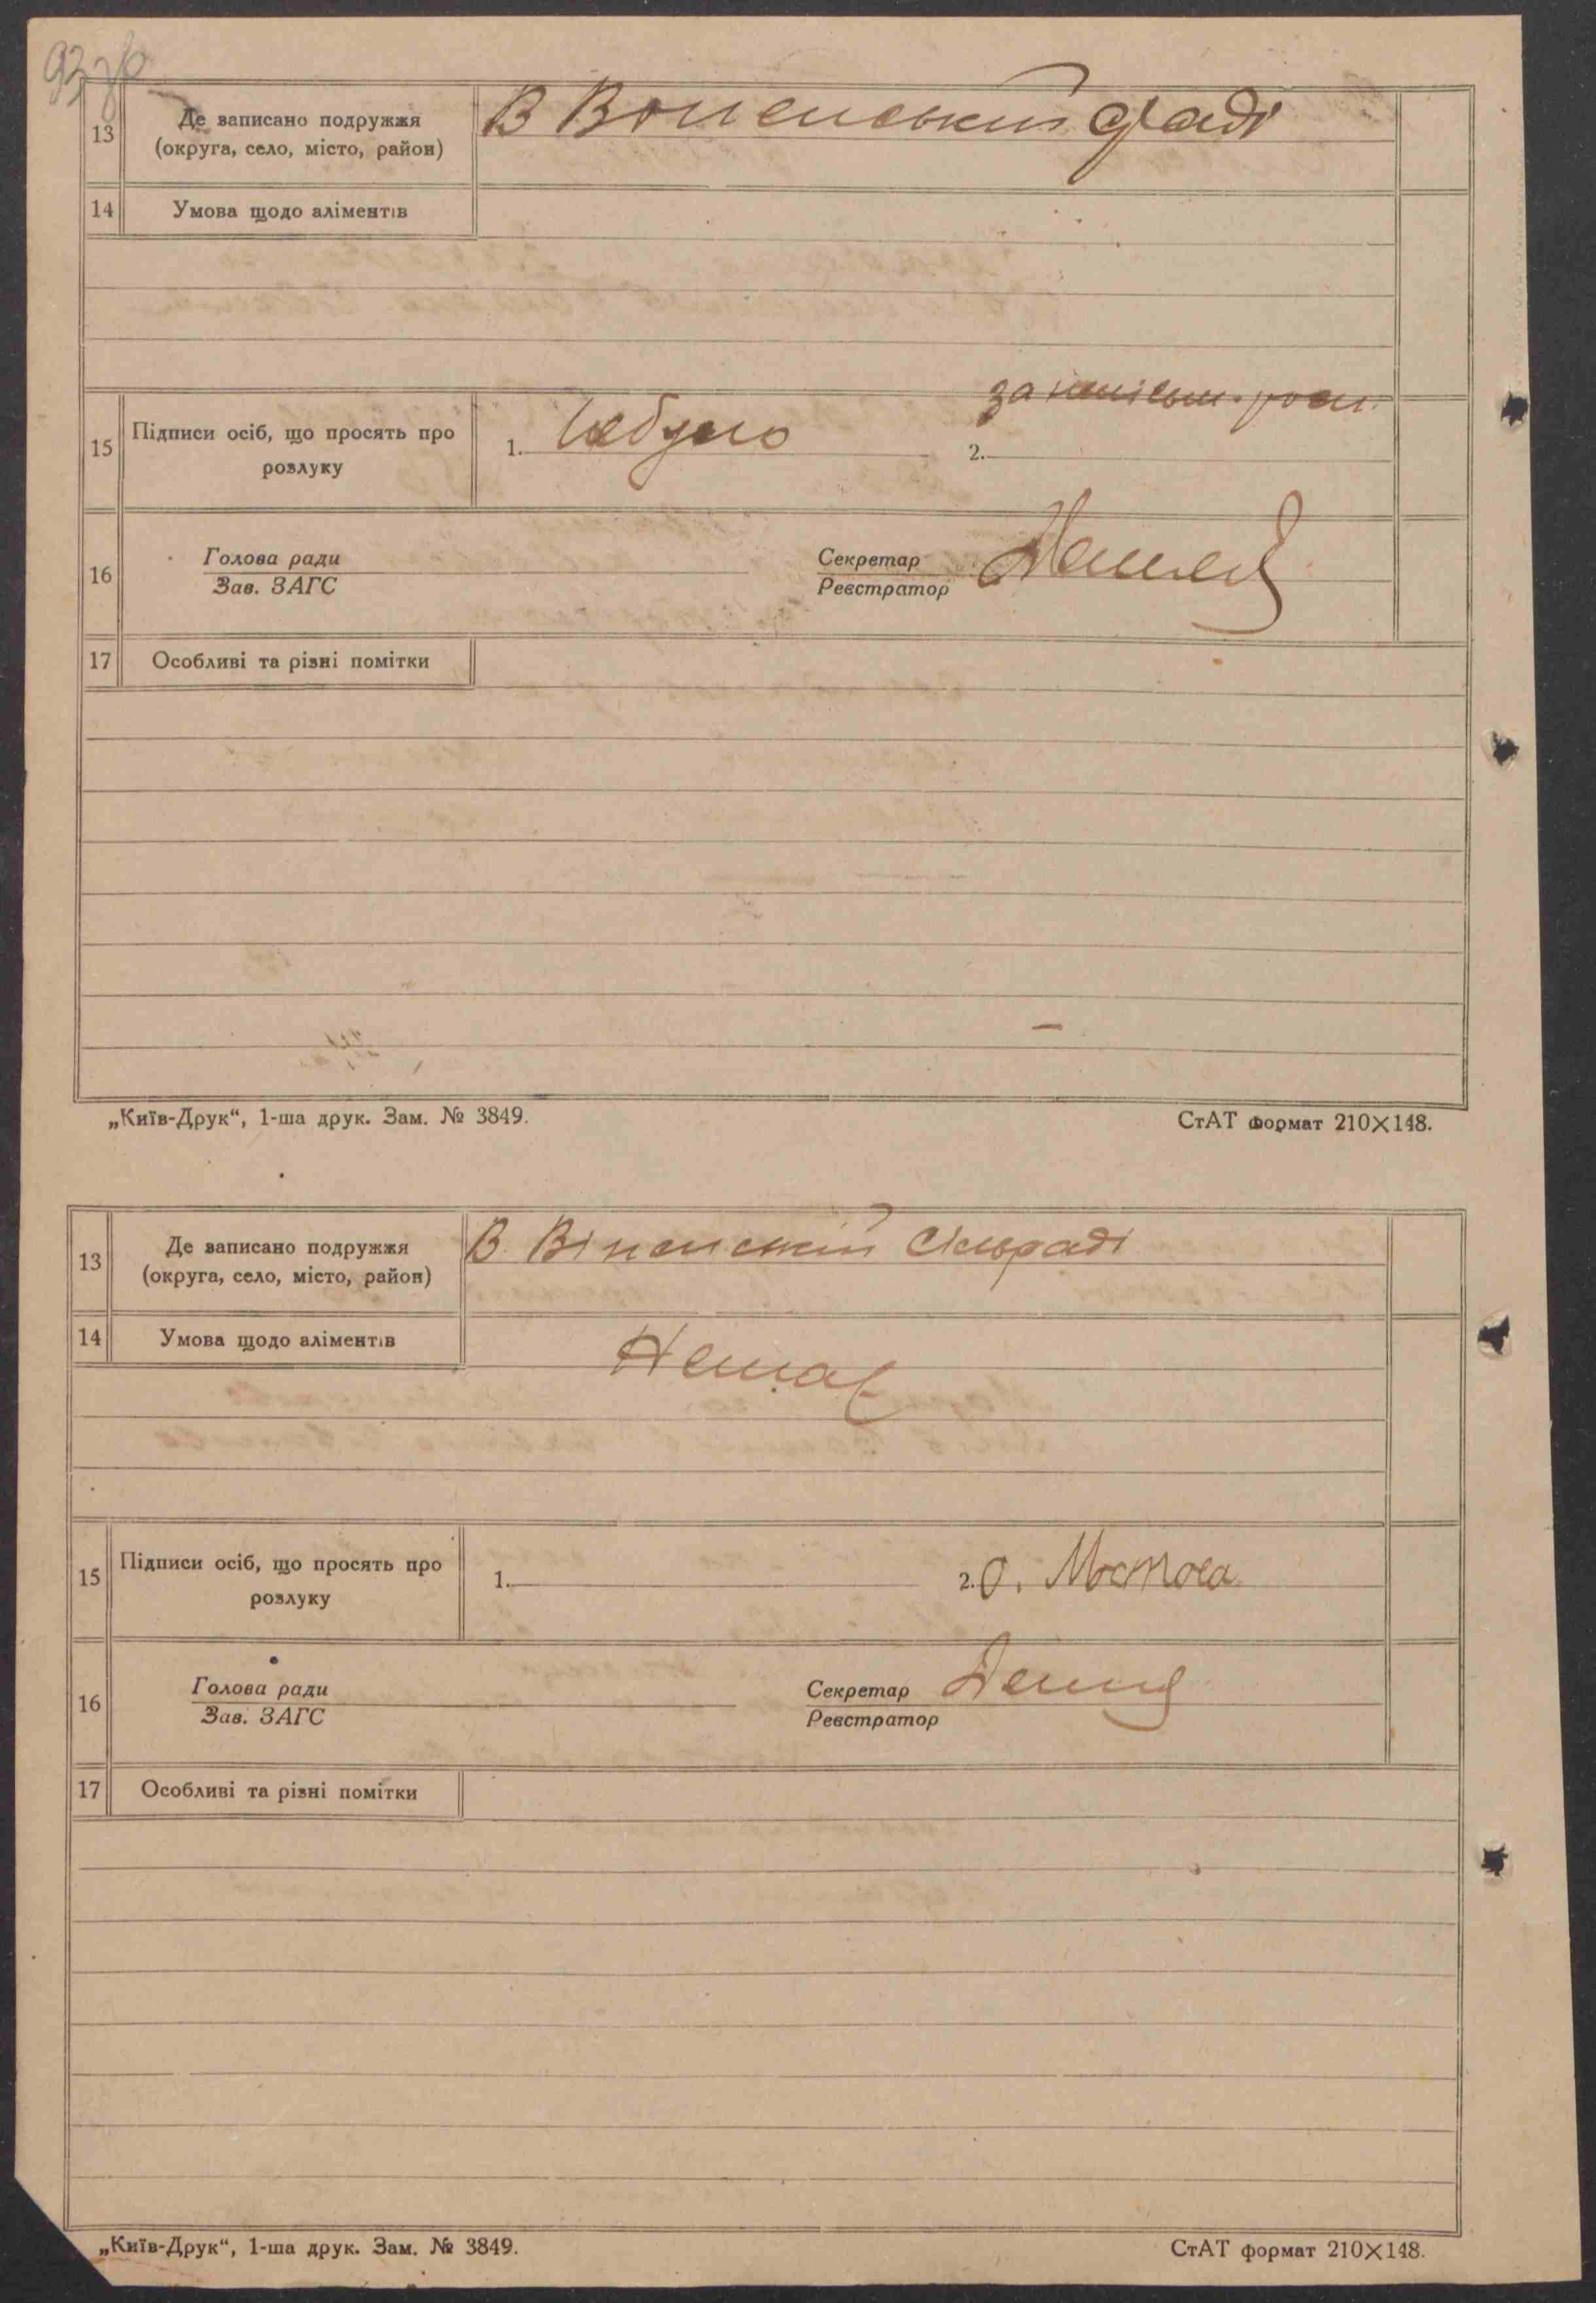 93 зв
13
Де записано подружжя
(округа, село, місто, район)
В
14
Умова щодо аліментів
15
Підписи осіб, що просять про
розлуку
1.
за
2.
16
Голова ради
Зав. ЗАГС
Секретар
Реєстратор
17
Особливі та різні помітки
„Київ-Друк“, 1-ша друк. Зам. № 3849.
СтАТ формат 210×148.
13
Де записано подружжя
(округа, село, місто, район)
В сільраді
14
Умова щодо аліментів
Немає
15
Підписи осіб, що просять про
розлуку
1.
2. О. Мостова
16
Голова ради
Зав. ЗАГС
Секретар
Реєстратор
17
Особливі та різні помітки
„Київ-Друк“, 1-ша друк. Зам. № 3849.
СтАТ формат 210×148.